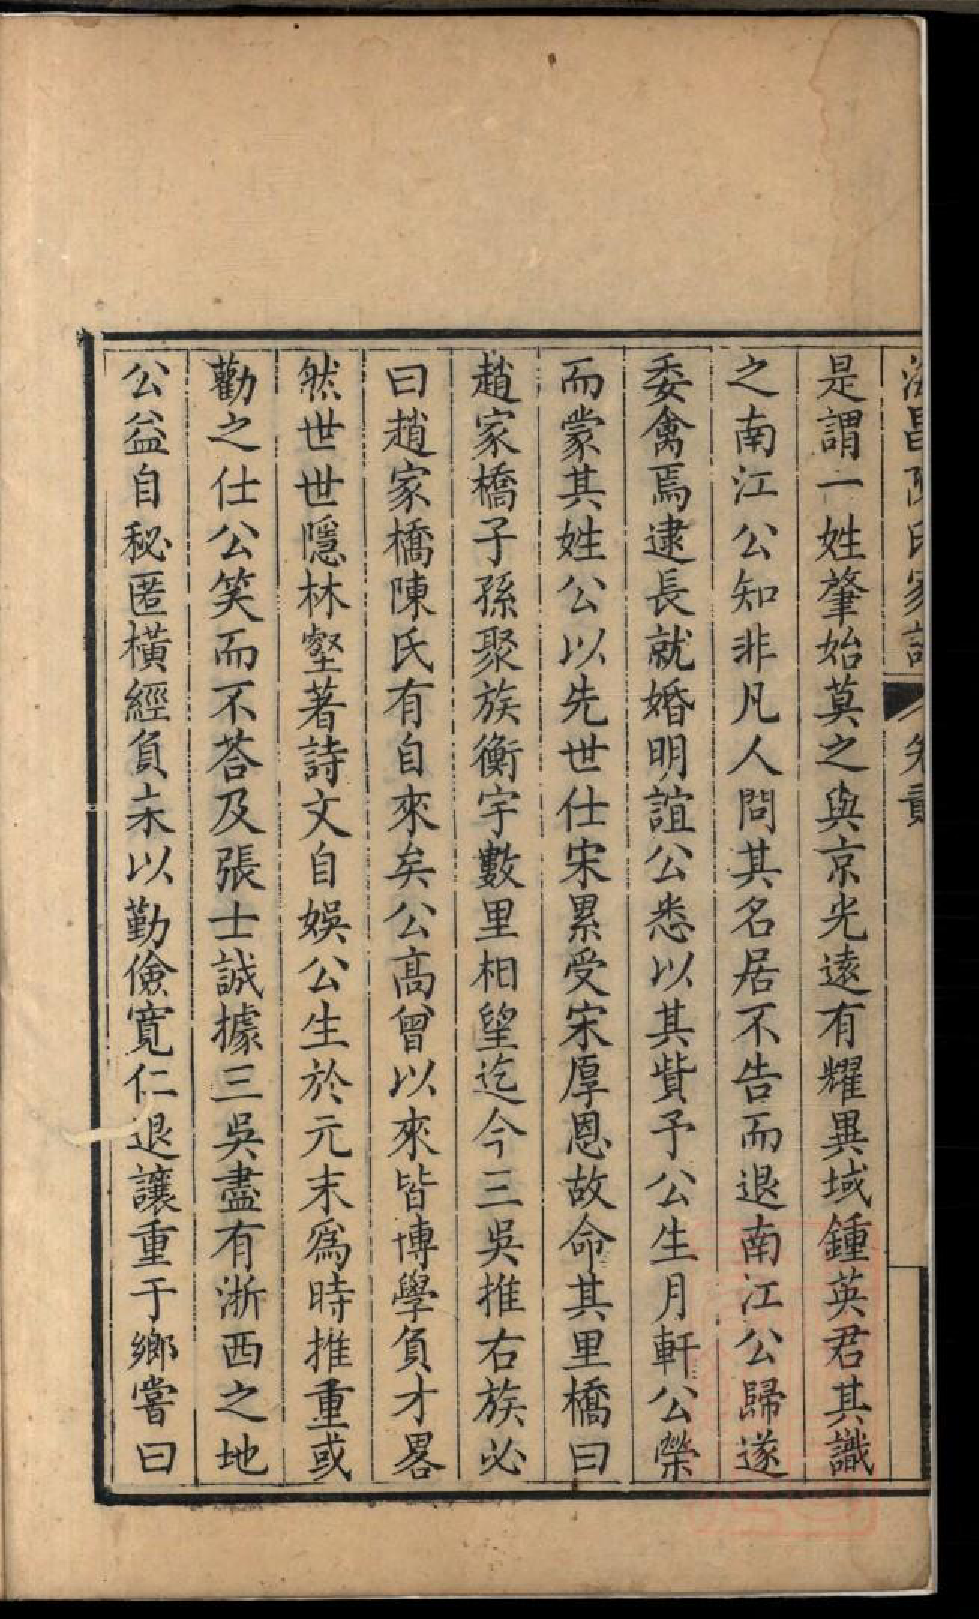 海昌陳氏家 卷貳
是謂一姓肇始莫之與京光遠有耀異域鍾英君其識
之南江公知非凡人問其名居不告而退南江公歸遂
委禽焉逮長就婚明誼公悉以其貲予公生月軒公榮
而蒙其姓公以先世仕宋累受宋厚恩故命其里橋曰
趙家橋子孫聚族衡宇數里相望迄今三吳推右族必
曰趙家橋陳氏有自來矣公高曾以來皆博學負才畧
然世世隱林壑著詩文自娛公生於元末爲時推重或
勸之仕公笑而不荅及張士誠據三吳盡有浙西之地
公益自秘匿橫經負耒以勤儉寬仁退讓重于鄉嘗曰